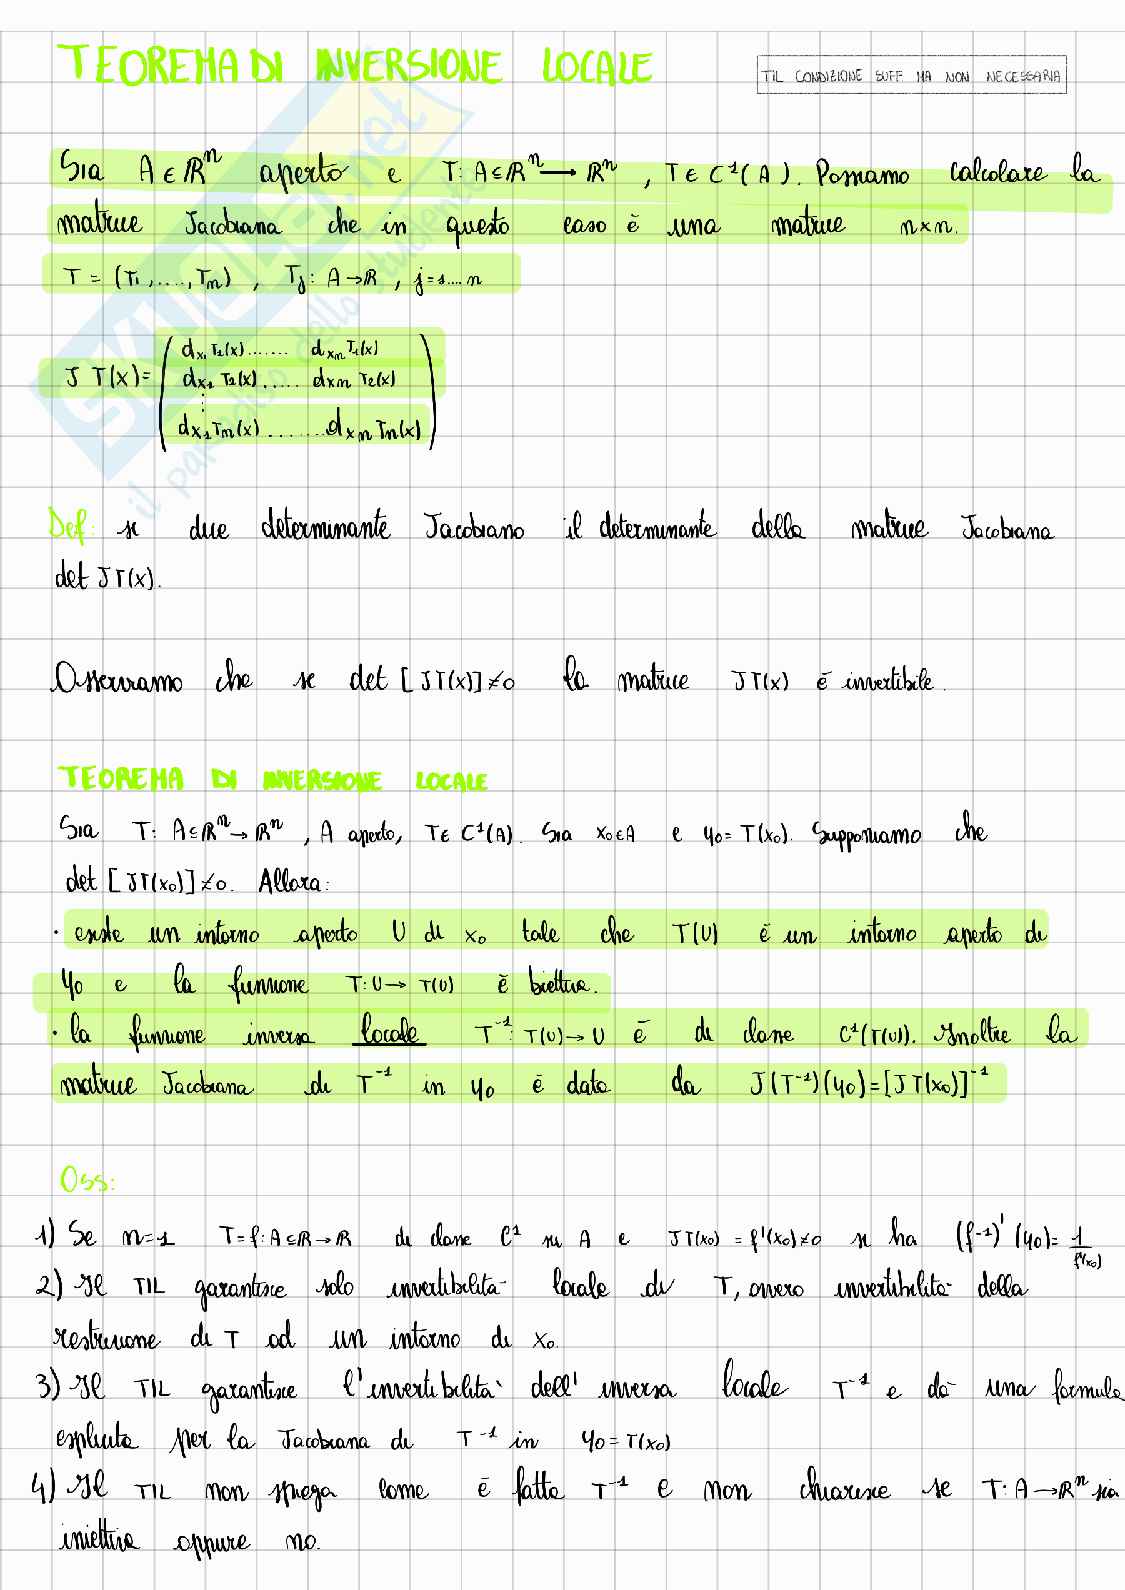 TEOREMA DI INVERSIONE LOCALE
TIL CONDIZIONE SUFF MA NON NECESSARIA
Sia A ∈ ℝⁿ aperto e T: A⊆ℝⁿ → ℝⁿ, T ∈ C¹(A). Possiamo calcolare la
matrice Jacobiana che in questo caso è una matrice n×n.
T = (T₁,....,Tₙ), Tⱼ: A→ℝ, j=1....n
J T(x)=
dx₁ T₁(x)....... dxₙ T₁(x)
dx₁ T₂(x)..... dxₙ T₂(x)
⋮
dx₁ Tₙ(x)........dxₙ Tₙ(x)
Def: si dice determinante Jacobiano il determinante della matrice Jacobiana
det JT(x).
Osserviamo che se det [JT(x)]≠0 la matrice JT(x) è invertibile.
TEOREMA DI INVERSIONE LOCALE
Sia T: A⊆ℝⁿ→ℝⁿ, A aperto, T∈ C¹(A). Sia x₀∈A e y₀= T(x₀). Supponiamo che
det [JT(x₀)]≠0. Allora:
· esiste un intorno aperto U di x₀ tale che T(U) è un intorno aperto di
y₀ e la funzione T: U→ T(U) è biettiva.
· la funzione inversa locale T⁻¹: T(U)→U è di classe C¹(T(U)). Inoltre la
matrice Jacobiana di T⁻¹ in y₀ è data da J(T⁻¹)(y₀)=[JT(x₀)]⁻¹
Oss:
1) Se n=1 T=f: A⊆ℝ→ℝ di classe C¹ su A e JT(x₀) = f'(x₀)≠0 si ha (f⁻¹)'(y₀)= 1/f'(x₀)
2) Il TIL garantisce solo invertibilità locale di T, ovvero invertibilità della
restrizione di T ad un intorno di x₀.
3) Il TIL garantisce l'invertibilità dell'inversa locale T⁻¹ e dà una formula
esplicita per la Jacobiana di T⁻¹ in y₀=T(x₀)
4) Il TIL non spiega come è fatta T⁻¹ e non chiarisce se T: A→ℝⁿ sia
iniettiva oppure no.
SKUOLA.net
il paradiso dello studente